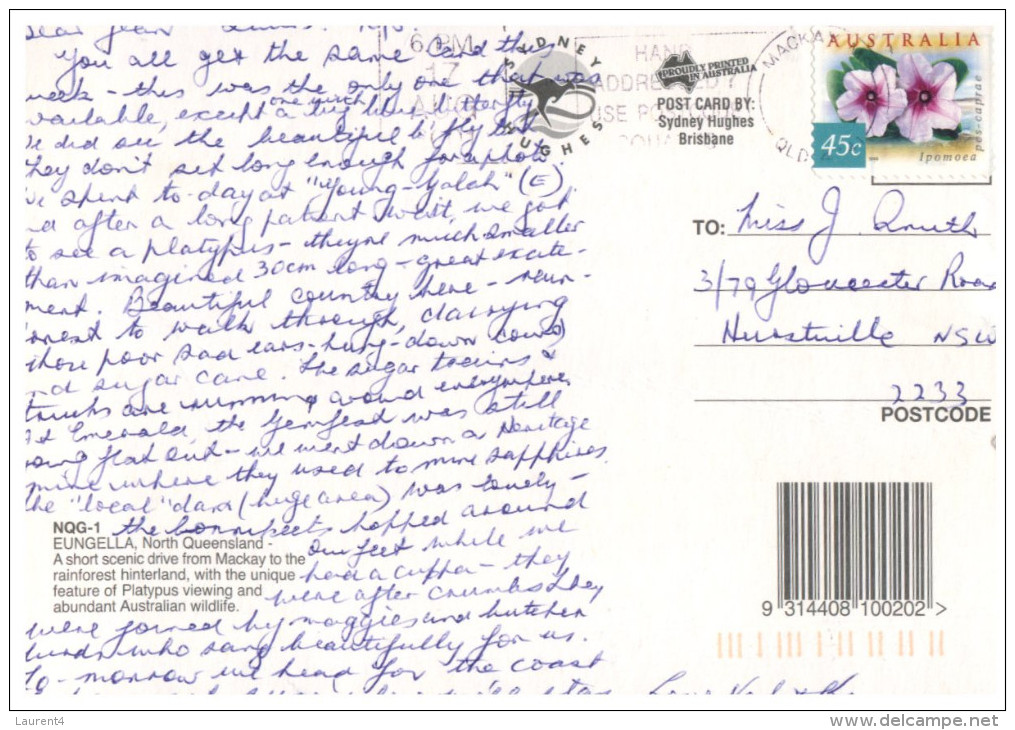 Dear Jean
You all get the same card this
week - this was the only one that was
available, except a big blue butterfly
one which
We did see the beautiful b'fly but
they don't set long enough for a photo.
We spent to-day at "Young-galah" (E).
and after a long patient wait, we got
to see a platypus - they're much smaller
than imagined 30cm long - great excite-
ment. Beautiful country here -
to walk through, dairying
(those poor sad ears-hung-down cows)
and sugar cane. The sugar trains &
trucks are running around everywhere
At Emerald, the Gemfest was still
going flat out - we went down a Heritage
mine where they used to mine sapphires.
The "local" dam (huge area) was lovely -
the hopped around
our feet while we
had a cuppa - they
were after crumbs & they
were joined by maggies and butcher
birds who sang beautifully for us.
To-morrow we head for the coast
Love
NQG-1
EUNGELLA, North Queensland -
A short scenic drive from Mackay to the
rainforest hinterland, with the unique
feature of Platypus viewing and
abundant Australian wildlife.
6 PM
17
AUG
SYDNEY
HUGHES
HAND
ADDRESSED?
USE PO
SQUARES
PROUDLY PRINTED
IN AUSTRALIA
POST CARD BY:
Sydney Hughes
Brisbane
MACKAY
QLD
AUSTRALIA
45c
Ipomoea
pes-caprae
TO: Miss J. Smith
3/79 Gloucester Road
Hurstville NSW
2233
POSTCODE
9 314408 100202 >
Laurent4
www.delcampe.net